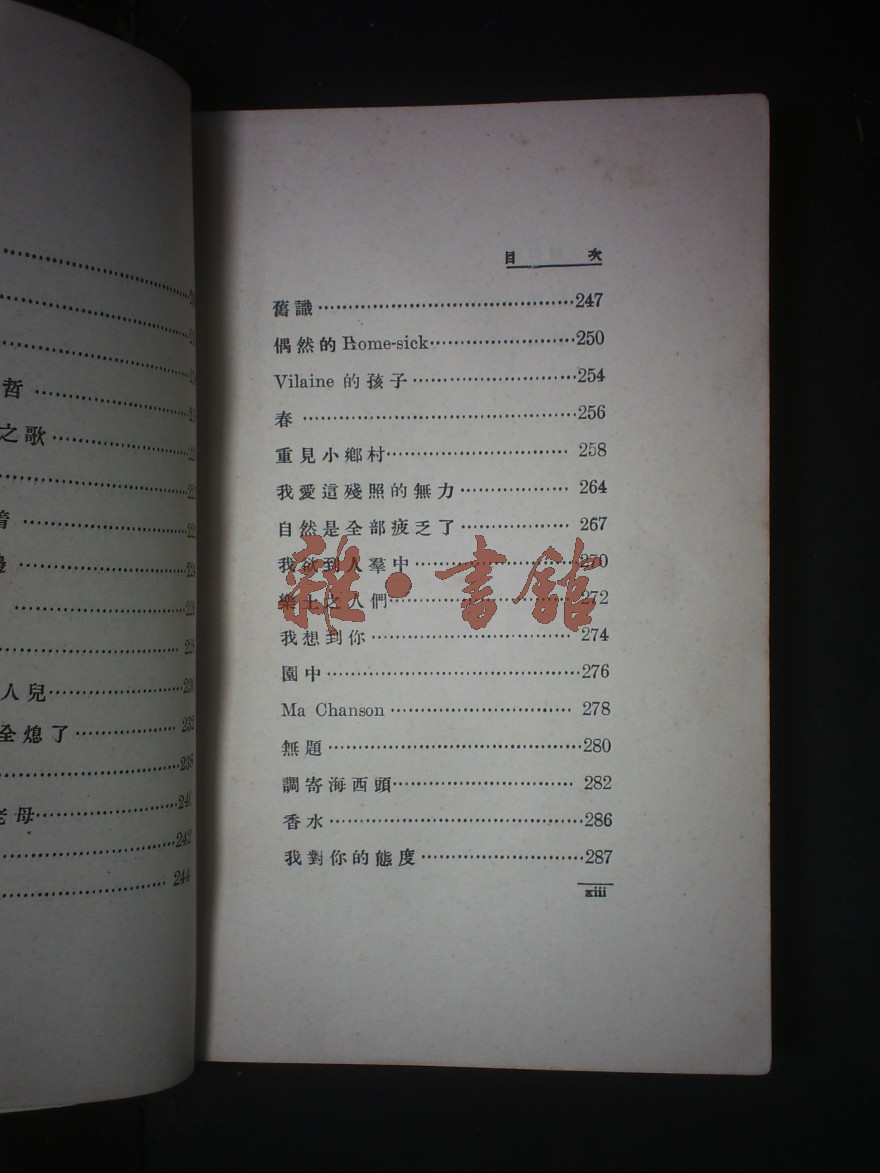 目 次
舊識 247
偶然的 Home-sick 250
Vilaine 的孩子 254
春 256
重見小鄉村 258
我愛這殘照的無力 264
自然是全部疲乏了 267
我欲到人羣中 270
樂土之人們 272
我想到你 274
園中 276
Ma Chanson 278
無題 280
調寄海西頭 282
香水 286
我對你的態度 287
xiii
雜·書館
哲
之歌
人兒
全熄了 232
238
老母
242
244